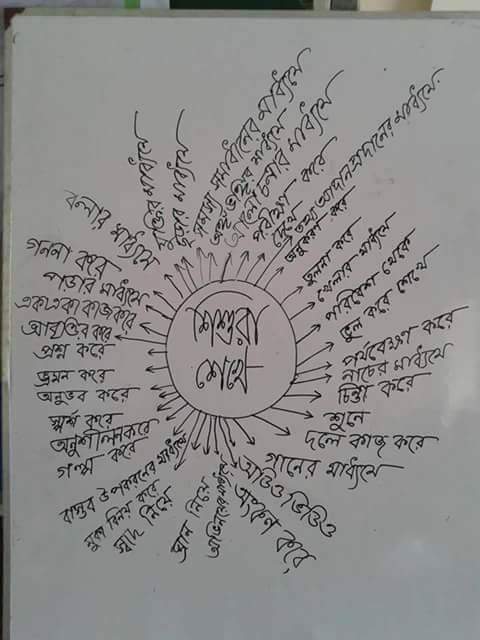 শিশুরা
শেখে
সমস্যা সমাধানের মাধ্যমে
অঙ্গভঙ্গির মাধ্যমে
আলোচনার মাধ্যমে
পরীক্ষা করে
দেখে
তথ্য আদান প্রদানের মাধ্যমে
অনুকরণ করে
তুলনা করে
খেলার মাধ্যমে
পরিবেশ থেকে
ভুল করে শেখে
পর্যবেক্ষণ করে
নাচের মাধ্যমে
চিন্তা করে
শুনে
দলে কাজ করে
গানের মাধ্যমে
অডিও ভিডিও
অংকন করে
অভিনয়ের মাধ্যমে
ঘ্রান নিয়ে
স্বাদ নিয়ে
করে
বাস্তব উপকরনের মাধ্যমে
গল্প করে
অনুশীলন করে
স্পর্শ করে
অনুভব করে
ভ্রমন করে
প্রশ্ন করে
আবৃত্তি করে
একা একা কাজ করে
পড়ার মাধ্যমে
গননা করে
বলার মাধ্যমে
মাধ্যমে
মাধ্যমে